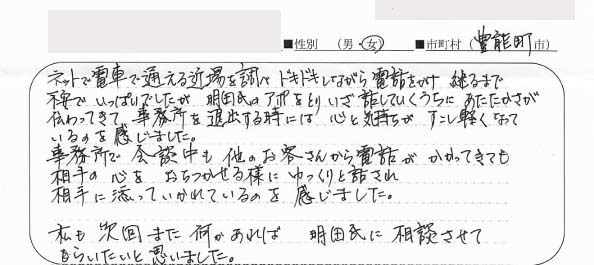 ■性別 (男・女) ■市町村 (豊能町市)
ネットで電車で通える近場を調べ ドキドキしながら電話をかけ 継るまで
不安で いっぱいでしたが 明田氏のアポをとり いざ 話していくうちに あたたかさが
伝わってきて、事務所を退出する時には 心と気持ちが すこし軽くなって
いるのを感じました。
事務所で 会談中も 他のお客さんから電話が かかってきても
相手の心を おちつかせる様に ゆっくりと話され
相手に添っていかれているのを 感じました。
私も 次回また 何かあれば 明田氏に 相談させて
もらいたいと思いました。